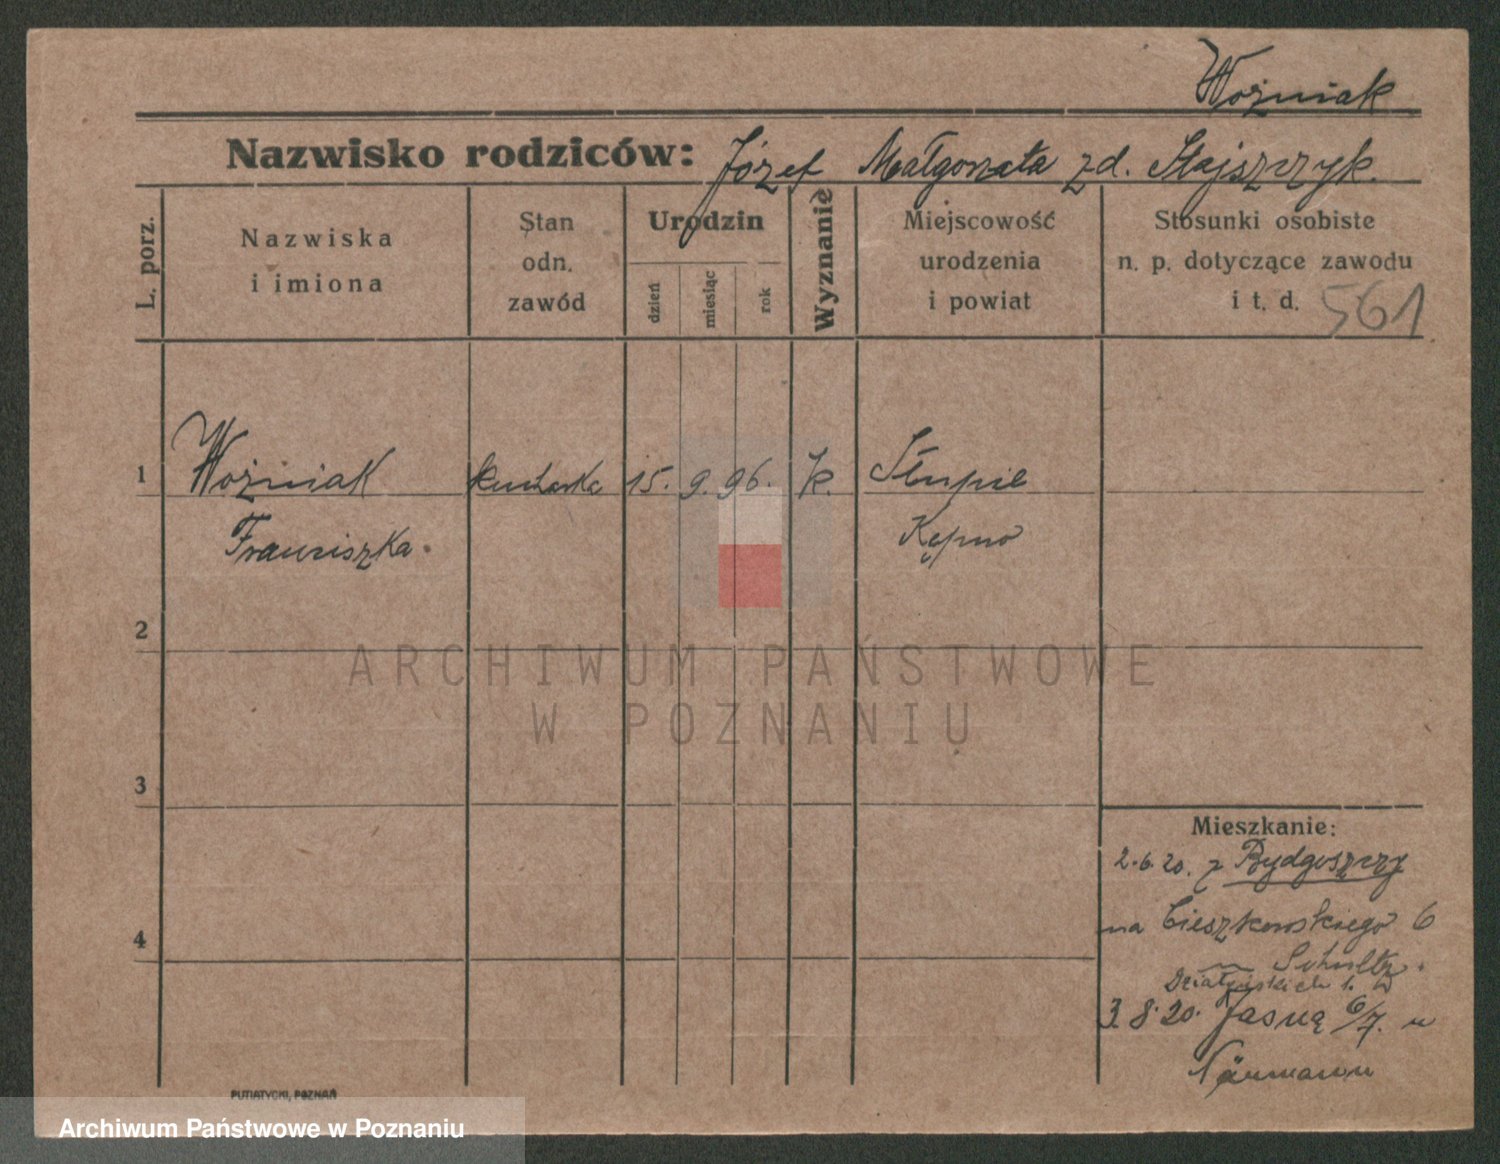 Woźniak
Nazwisko rodziców: Józef Małgorzata zd. Stajszczyk.
L. porz.
Nazwiska
i imiona
Stan
odn.
zawód
Urodzin
dzień
miesiąc
rok
Wyznanie
Miejscowość
urodzenia
i powiat
Stosunki osobiste
n. p. dotyczące zawodu
i t. d. 561
1 Woźniak kucharka 15. 9. 96. k. Słupie
Franciszka. Kępno
2
ARCHIWUM PAŃSTWOWE
W POZNANIU
3
Mieszkanie:
2.6.20. z Bydgoszczy
na Cieszkowskiego 6
Schultz.
4
Działyńskich 1.
3.8.20. Jasną 6/7. u
Näumann
PUTIATYCKI, POZNAŃ
Archiwum Państwowe w Poznaniu